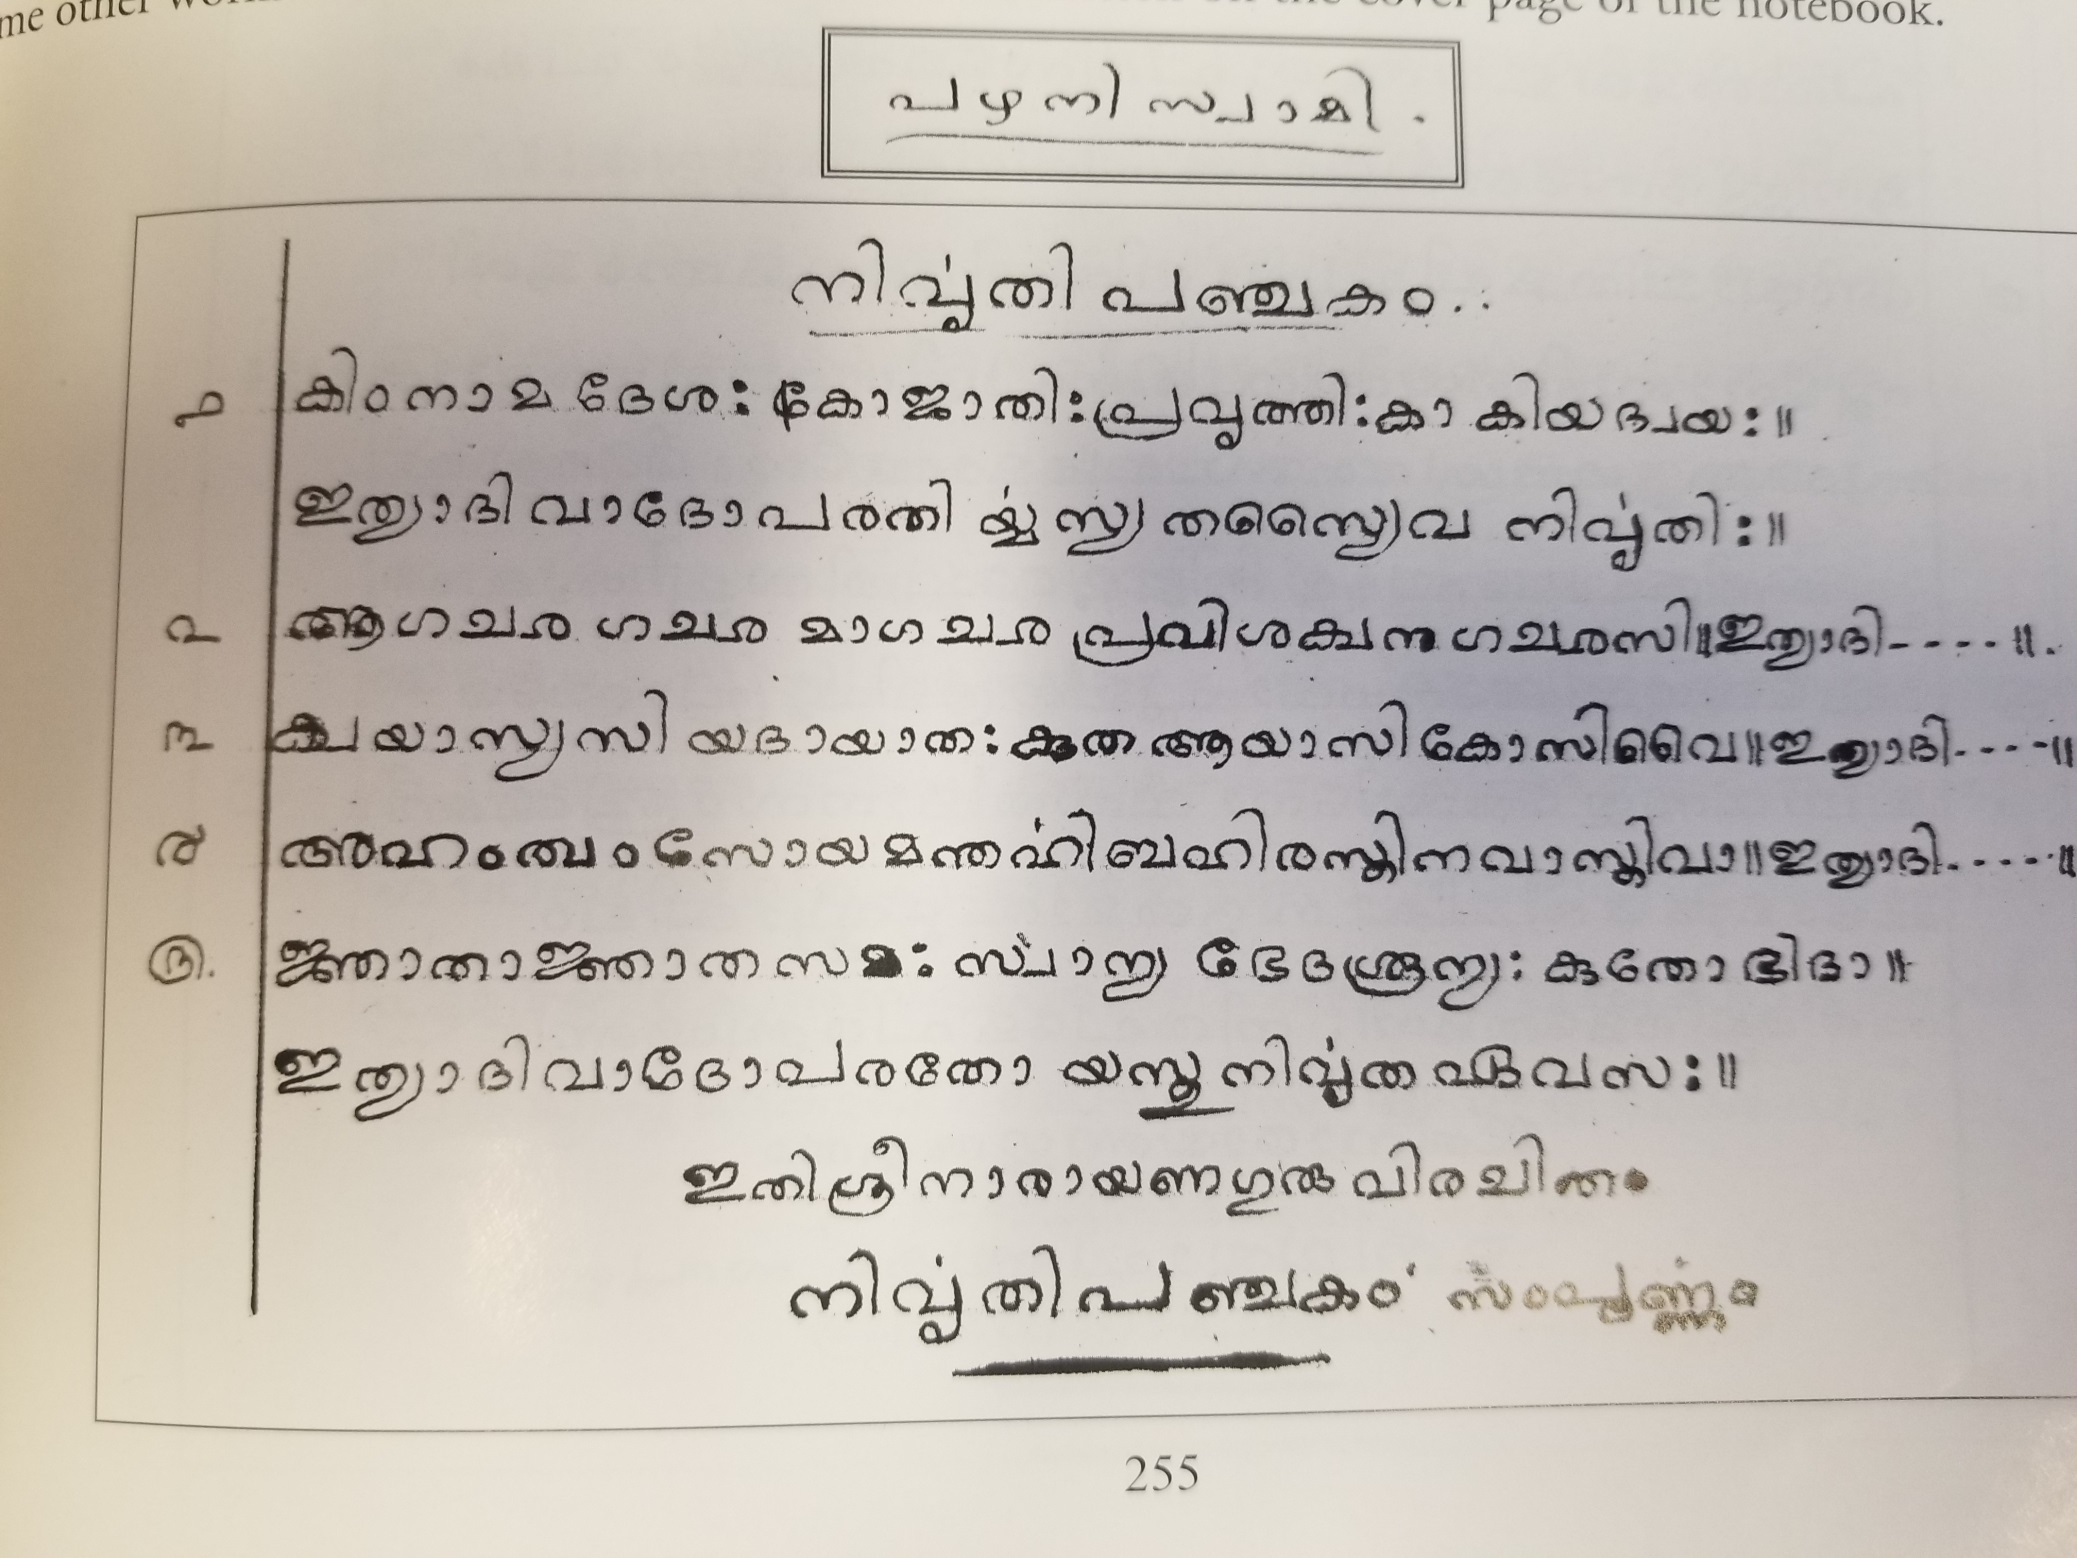 me other
on the cover page of the notebook.
പഴനിസ്വാമി.
നിർവൃതി പഞ്ചകം..
൧ കിംനാമ ദേശഃ കോജാതിഃപ്രവൃത്തിഃകാ കിയദ്വയഃ॥
ഇത്യാദി വാദോപരതി ൎയ്യസ്യ തസ്യൈവ നിൎവൃതിഃ॥
൨ ആഗച്ഛ ഗച്ഛ മാഗച്ഛ പ്രവിശക്വനു ഗച്ഛസി॥ഇത്യാദി----॥.
൩ ക്വ യാസ്യസി യദായാതഃ കുത ആയാസി കോസിവൈ॥ഇത്യാദി----॥
൪ അഹംത്വംസോയമന്തൎഹിബഹിരസ്തിനവാസ്തിവാ॥ഇത്യാദി-----॥
൫. ജ്ഞാതാജ്ഞാതസമഃ സ്വാന്യ ഭേദശൂന്യഃ കുതോ ഭിദാ॥
ഇത്യാദിവാദോപരതോ യസ്തു നിൎവൃത ഏവസഃ॥
ഇതിശ്രീനാരായണഗുരു വിരചിതം
നിൎവൃതിപഞ്ചകം സംപൂൎണ്ണം
255